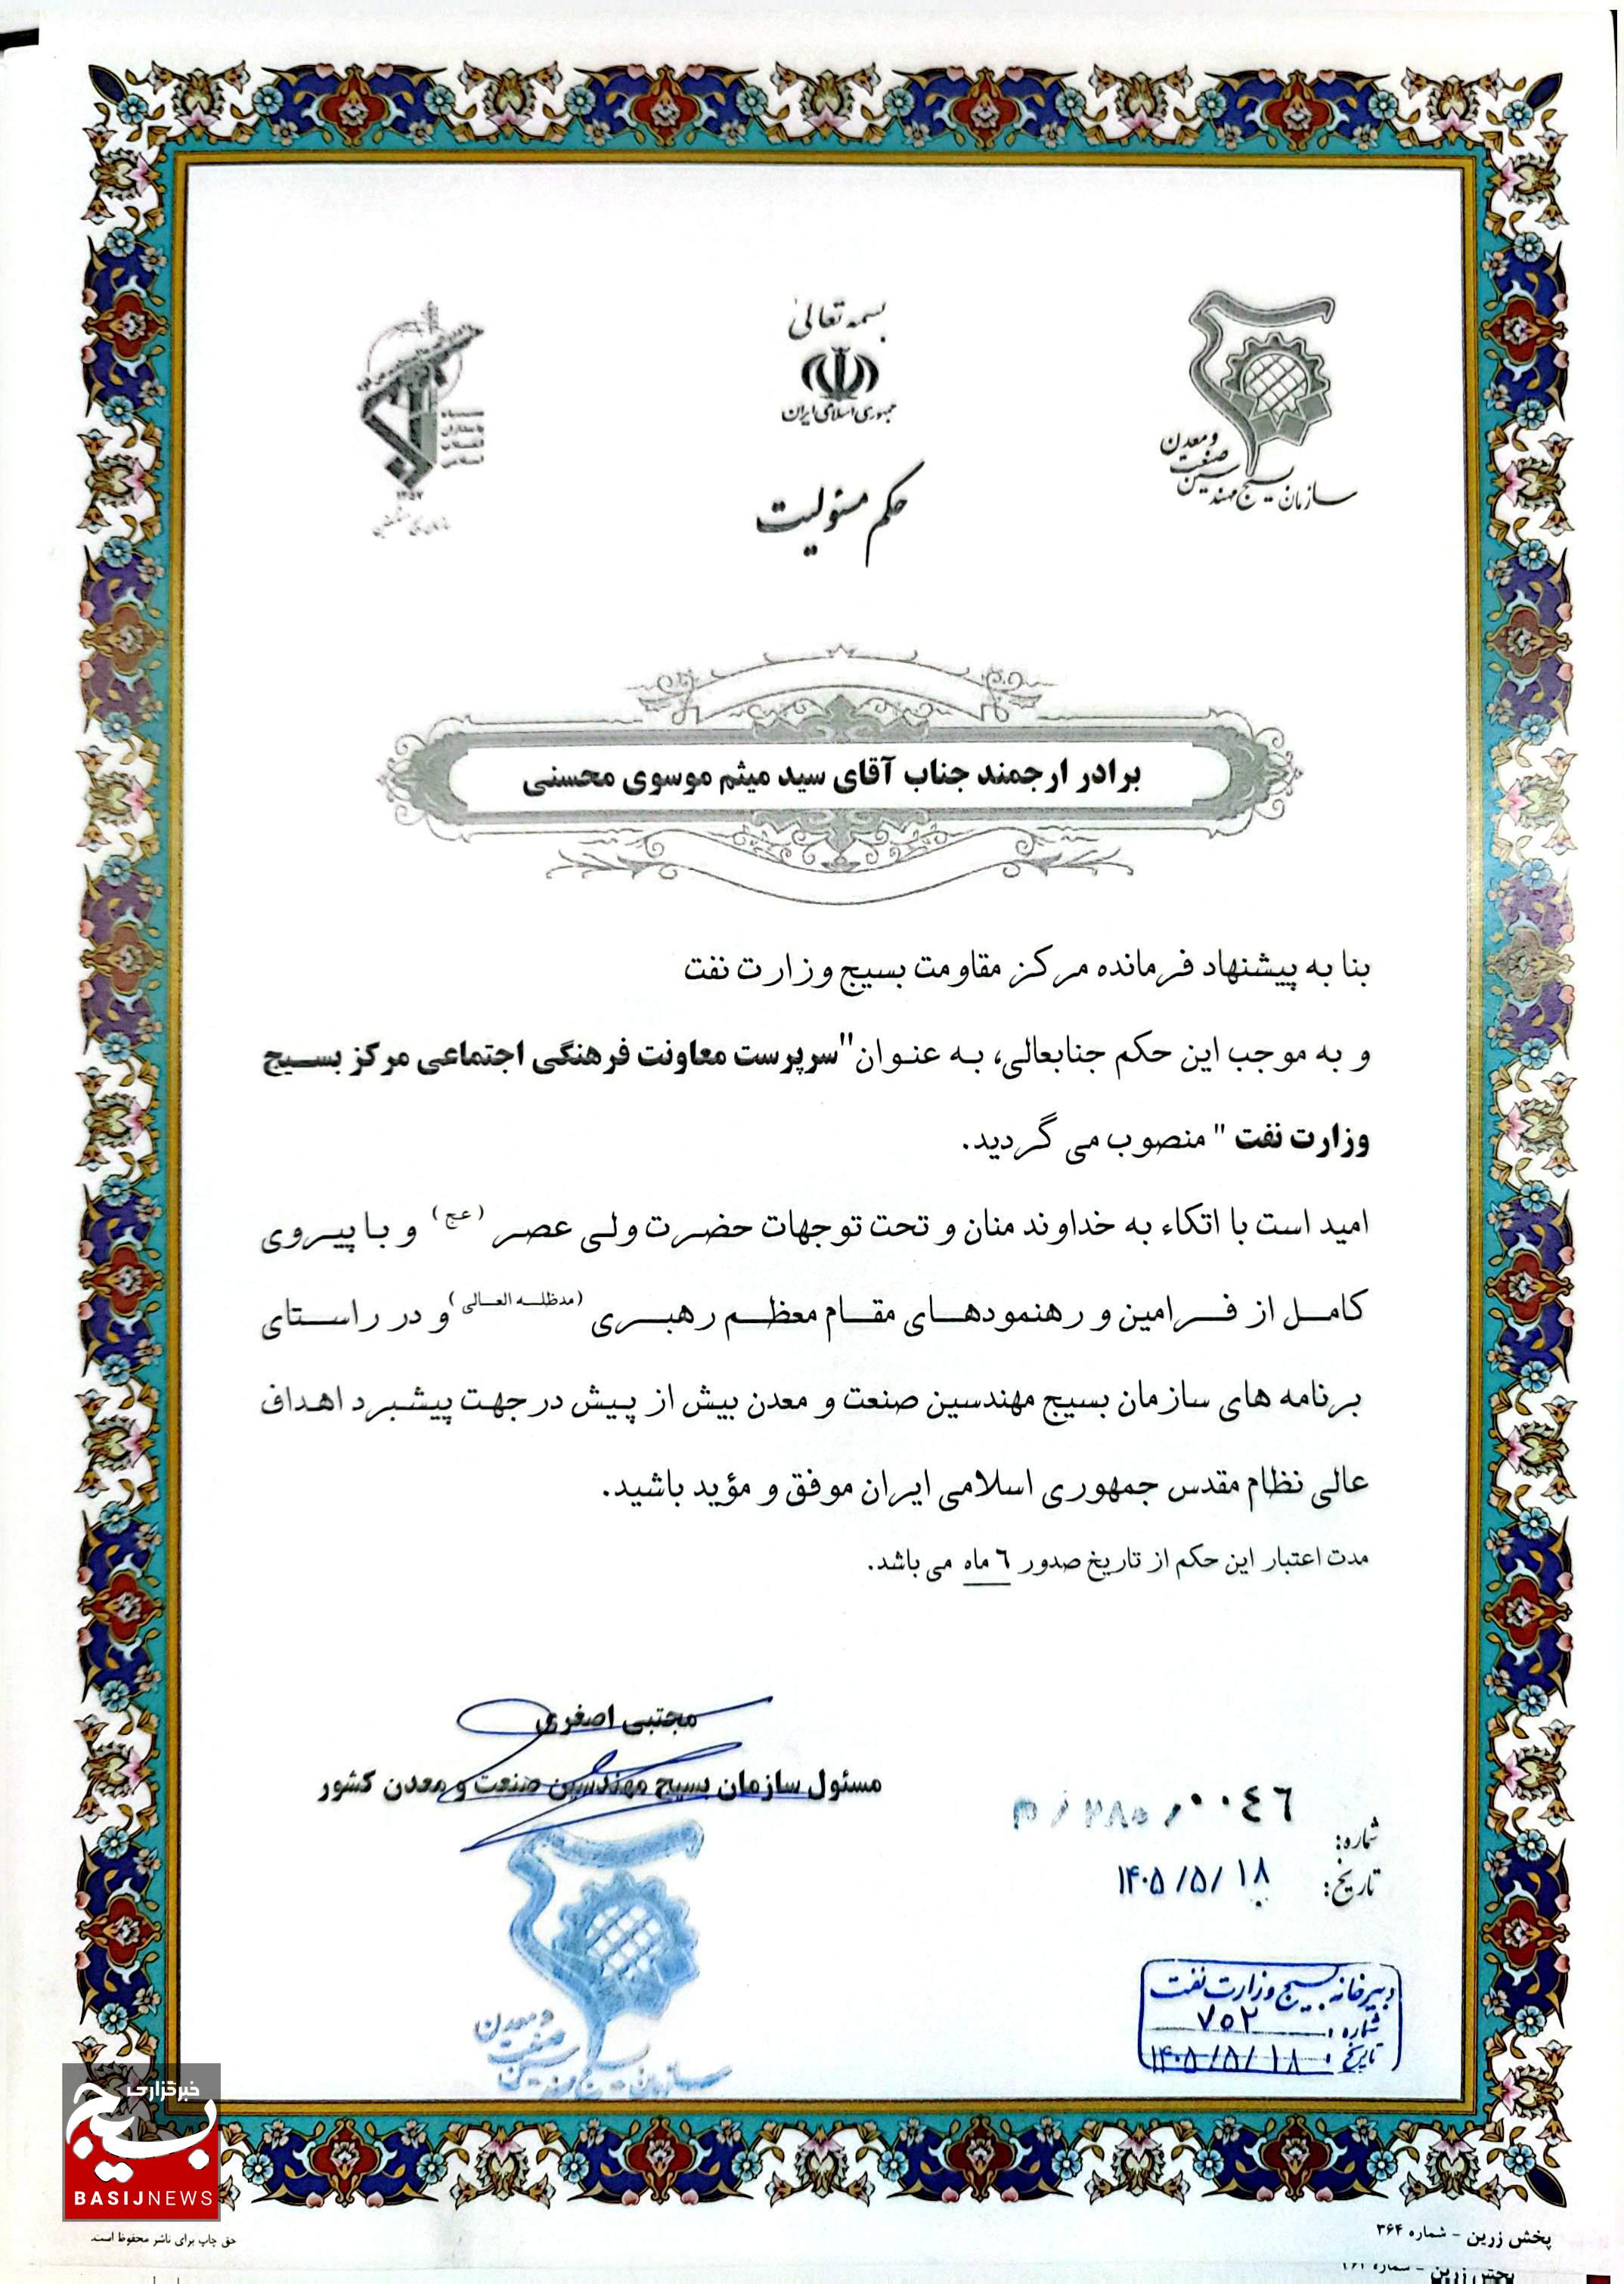 بسمه تعالی
جمهوری اسلامی ایران
سپاه
پاسداران
انقلاب
اسلامی
۱۳۵۷
سازمان بسیج مهندسین
صنعت
و معدن
حکم مسئولیت
برادر ارجمند جناب آقای سید میثم موسوی محسنی
بنا به پیشنهاد فرمانده مرکز مقاومت بسیج وزارت نفت
و به موجب این حکم جنابعالی، به عنوان "سرپرست معاونت فرهنگی اجتماعی مرکز بسیج
وزارت نفت " منصوب می گردید.
امید است با اتکاء به خداوند منان و تحت توجهات حضرت ولی عصر (عج) و با پیروی
کامل از فرامین و رهنمودهای مقام معظم رهبری (مدظله العالی) و در راستای
برنامه های سازمان بسیج مهندسین صنعت و معدن بیش از پیش در جهت پیشبرد اهداف
عالی نظام مقدس جمهوری اسلامی ایران موفق و مؤید باشید.
مدت اعتبار این حکم از تاریخ صدور ٦ ماه می باشد.
مجتبی اصغری
مسئول سازمان بسیج مهندسین صنعت و معدن کشور
شماره: ۰۰٤٦
تاریخ: ۱۴۰۵/۵/۱۸
سازمان بسیج مهندسین
صنعت
و معدن
دبیرخانه بسیج وزارت نفت
شماره : ۷۵۲
تاریخ : ۱۴۰۵/۵/۱۸
خبرگزاری
بسیج
BASIJNEWS
حق چاپ برای ناشر محفوظ است.
پخش زرین - شماره ۳۶۴